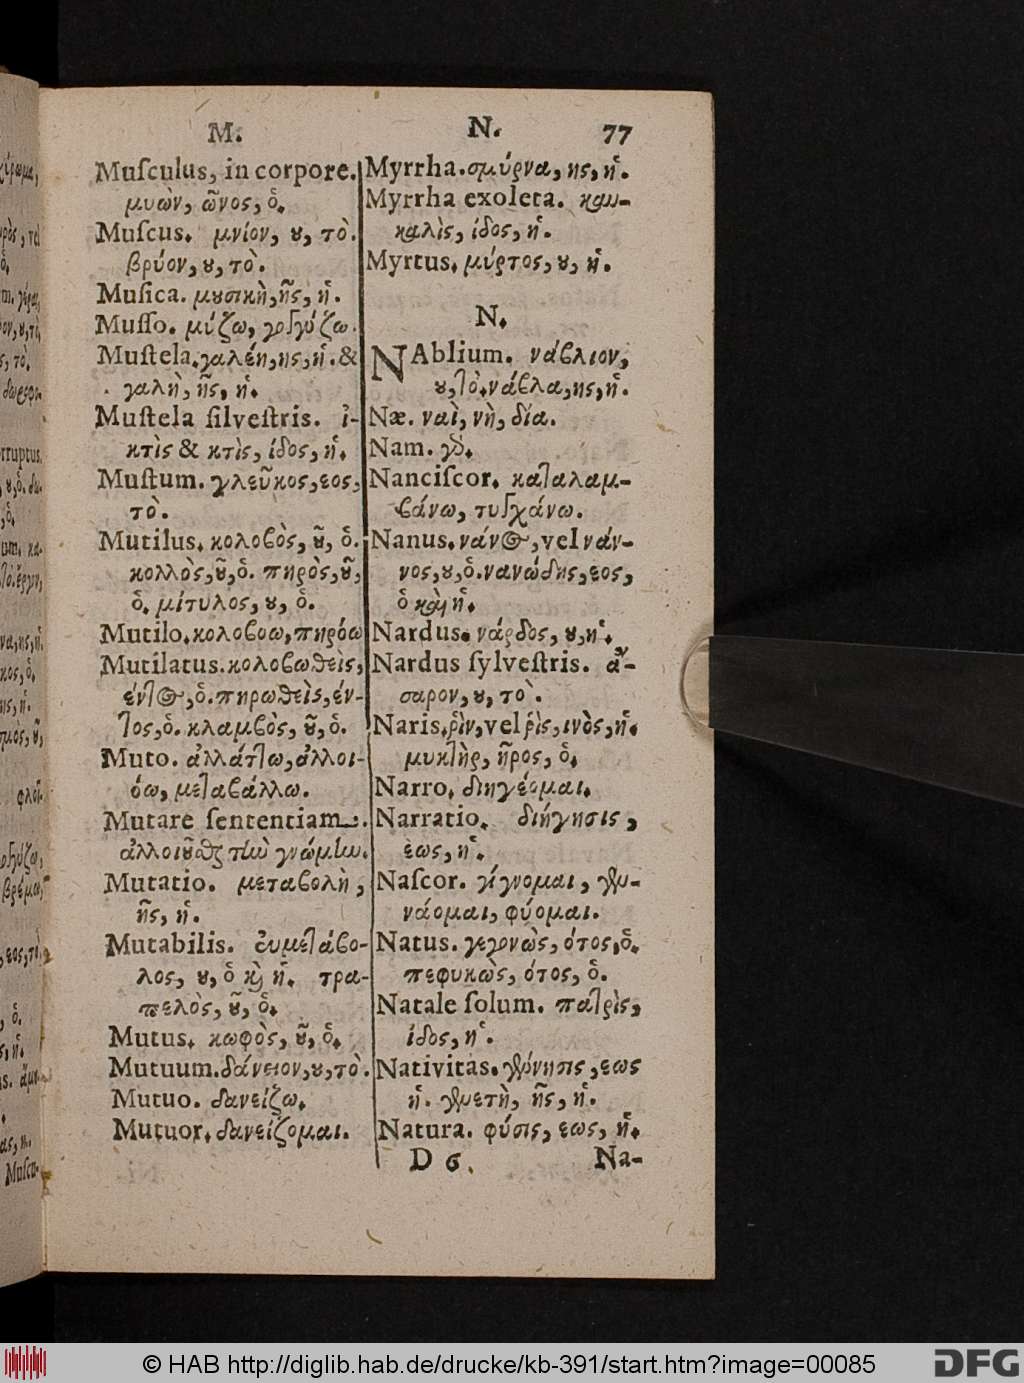 M.
Muſculus, in corpore.
μυὼν, ῶνος, ὁ.
Muſcus. μνίον, ȣ, τὸ.
βρύον, ȣ, τὸ.
Muſica. μȣσικὴ, ῆς, ἡ.
Muſſo. μύζω, γογγύζω.
Muſtela. γαλέη, ης, ἡ. &
γαλὴ, ῆς, ἡ.
Muſtela ſilveſtris. ἰ-
κτὶς & κτὶς, ίδος, ἡ.
Muſtum. γλεῦκος, εος,
τὸ.
Mutilus. κολοβὸς, ȣ͂, ὁ.
κολλὸς, ȣ͂, ὁ. πηρὸς, ȣ͂,
ὁ. μίτυλος, ȣ, ὁ.
Mutilo. κολοβοω, πηρόω
Mutilatus. κολοβωθεὶς,
έντος, ὁ. πηρωθεὶς, έν-
τος, ὁ. κλαμβὸς, ȣ͂, ὁ.
Muto. ἀλλάττω, ἀλλοι-
όω, μεταβάλλω.
Mutare ſententiam.
ἀλλοιȣ͂σθαι τὴν γνώμην.
Mutatio. μεταβολὴ,
ῆς, ἡ.
Mutabilis. εὐμετάβο-
λος, ȣ, ὁ καὶ ἡ. τρα-
πελὸς, ȣ͂, ὁ.
Mutus. κωφὸς, ȣ͂, ὁ.
Mutuum. δάνειον, ȣ, τὸ.
Mutuo. δανείζω.
Mutuor. δανείζομαι.
N. 77
Myrrha. σμύρνα, ης, ἡ.
Myrrha exoleta. καυ-
καλὶς, ίδος, ἡ.
Myrtus. μύρτος, ȣ, ἡ.
N.
NAblium. νάβλιον,
ȣ, τὸ. νάβλα, ης, ἡ.
Næ. ναὶ, νὴ, δία.
Nam. γὰρ.
Nanciſcor. καταλαμ-
βάνω, τυγχάνω.
Nanus. νάνος, vel νάν-
νος, ȣ, ὁ. νανώδης, εος,
ὁ καὶ ἡ.
Nardus. νάρδος, ȣ, ἡ.
Nardus ſylveſtris. ἄ-
σαρον, ȣ, τὸ.
Naris. ῥὶν, vel ῥὶς, ινὸς, ἡ.
μυκτὴρ, ῆρος, ὁ.
Narro. διηγέομαι.
Narratio. διήγησις,
έως, ἡ.
Naſcor. γίγνομαι, γεν-
νάομαι, φύομαι.
Natus. γεγονὼς, ότος, ὁ.
πεφυκὼς, ότος, ὁ.
Natale ſolum. πατρὶς,
ίδος, ἡ.
Nativitas. γέννησις, εως
ἡ. γενετὴ, ῆς, ἡ.
Natura. φύσις, εως, ἡ.
D 6. Na-
© HAB http://diglib.hab.de/drucke/kb-391/start.htm?image=00085
DFG